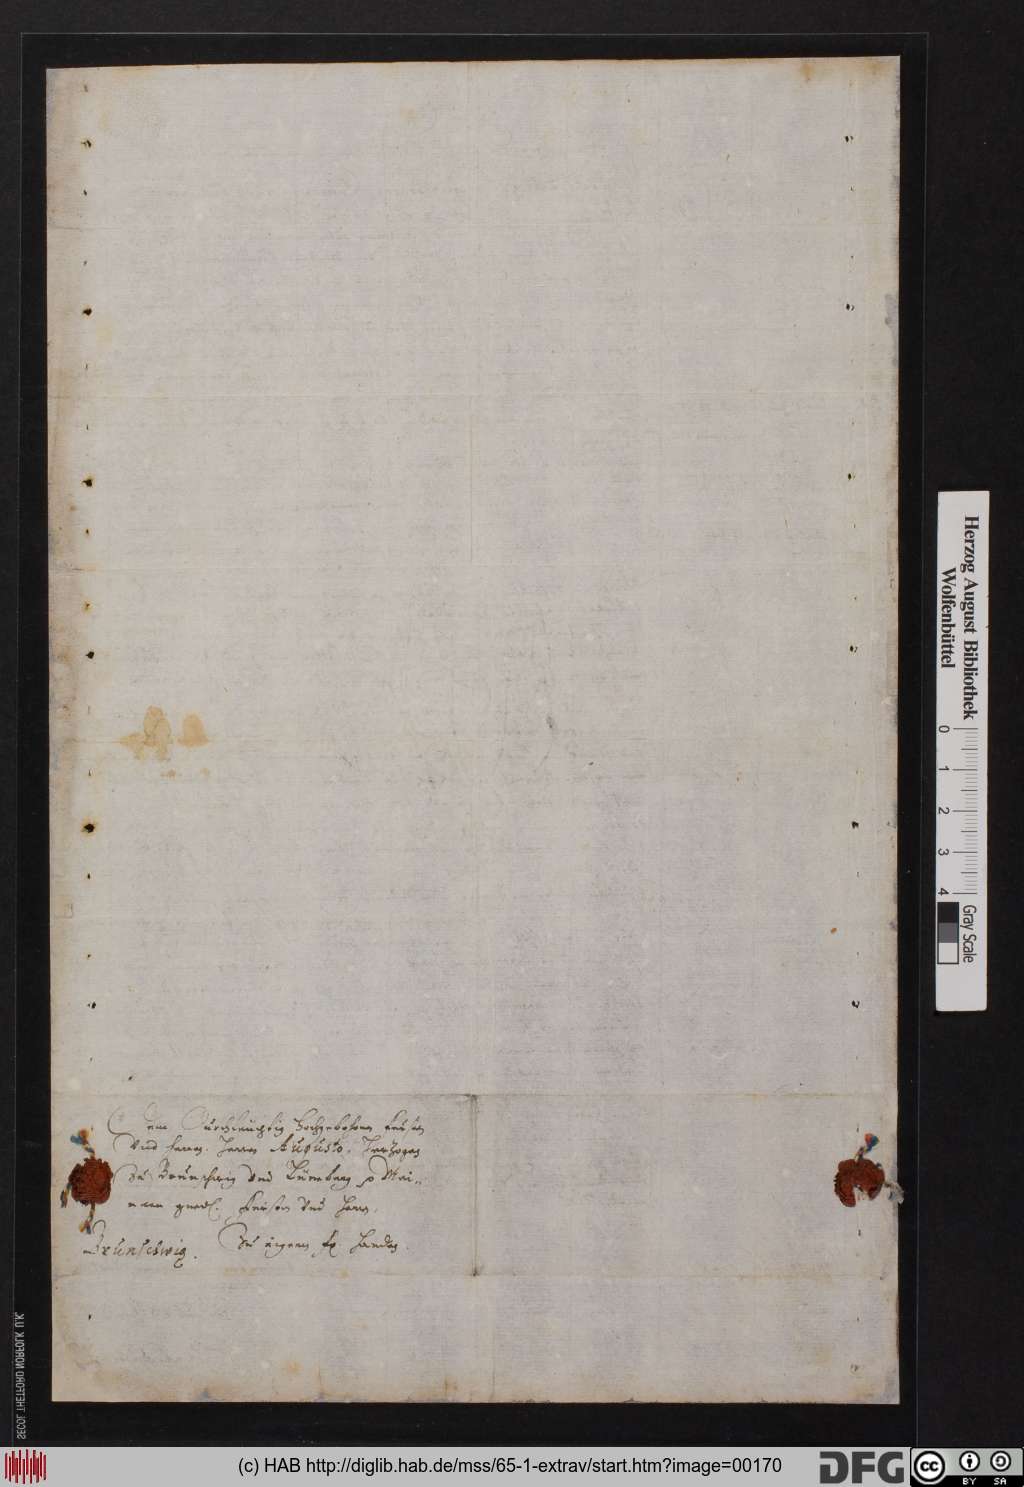 Dem Durchleuchtig Hochgebohrn Fürsten
Vnd Herrn. Herrn Augusto, Hertzogen
Zu Braunschweig Vnd Lüneburg p Mei=
nem gnedl. Fürsten Vnd Herrn,
Zu eigenen Handen.
Brunschwig.
Herzog August Bibliothek
Wolfenbüttel
0 1 2 3 4
Gray Scale
SECOL THETFORD NORFOLK U.K.
(c) HAB http://diglib.hab.de/mss/65-1-extrav/start.htm?image=00170
DFG
cc
BY SA